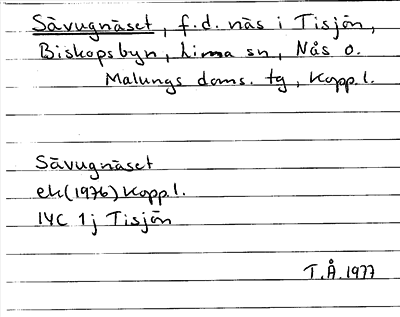 Sävugnäset, f.d. näs i Tisjön,
Biskopsbyn, Lima sn, Nås o.
Malungs doms. tg, Kopp.l.
Sävugnäset
ek(1976) Kopp.l.
14C 1j Tisjön
T.Å.1977